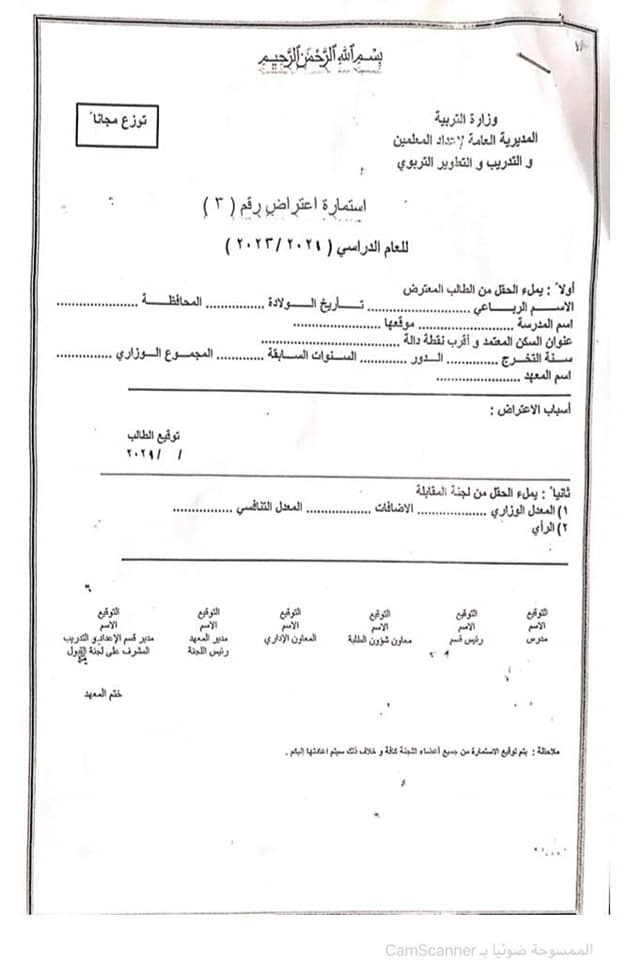 بسم الله الرحمن الرحيم
توزع مجاناً
وزارة التربية
المديرية العامة لإعداد المعلمين
و التدريب و التطوير التربوي
استمارة اعتراض رقم ( ٣ )
للعام الدراسي
أولاً : يملء الحقل من الطالب المعترض
الاسـم الربـاعي ........................ تـاريخ الـولادة .............. المحافظـة ....................
اسم المدرسة ...................... موقعها .....................
عنوان السكن المعتمد و أقرب نقطة دالة .................................
سنة التخرج ............ الدور ............ السنوات السابقة ............ المجموع الوزاري ..............
اسم المعهد .....................
أسباب الاعتراض :
توقيع الطالب
/ /
ثانياً : يملء الحقل من لجنة المقابلة
١) المعدل الوزاري ................. الاضافات ................ المعدل التنافسي ...............
٢) الرأي
التوقيع التوقيع التوقيع التوقيع التوقيع التوقيع
الاسم الاسم الاسم الاسم الاسم الاسم
مدرس رئيس قسم معاون شؤون الطلبة المعاون الإداري مدير المعهد مدير قسم الإعداد و التدريب
رئيس اللجنة المشرف على لجنة القبول
ختم المعهد
ملاحظة : يتم توقيع الاستمارة من جميع أعضاء اللجنة كافة و خلاف ذلك سيتم اعادتها إليكم .
الممسوحة ضوئيا بـ CamScanner